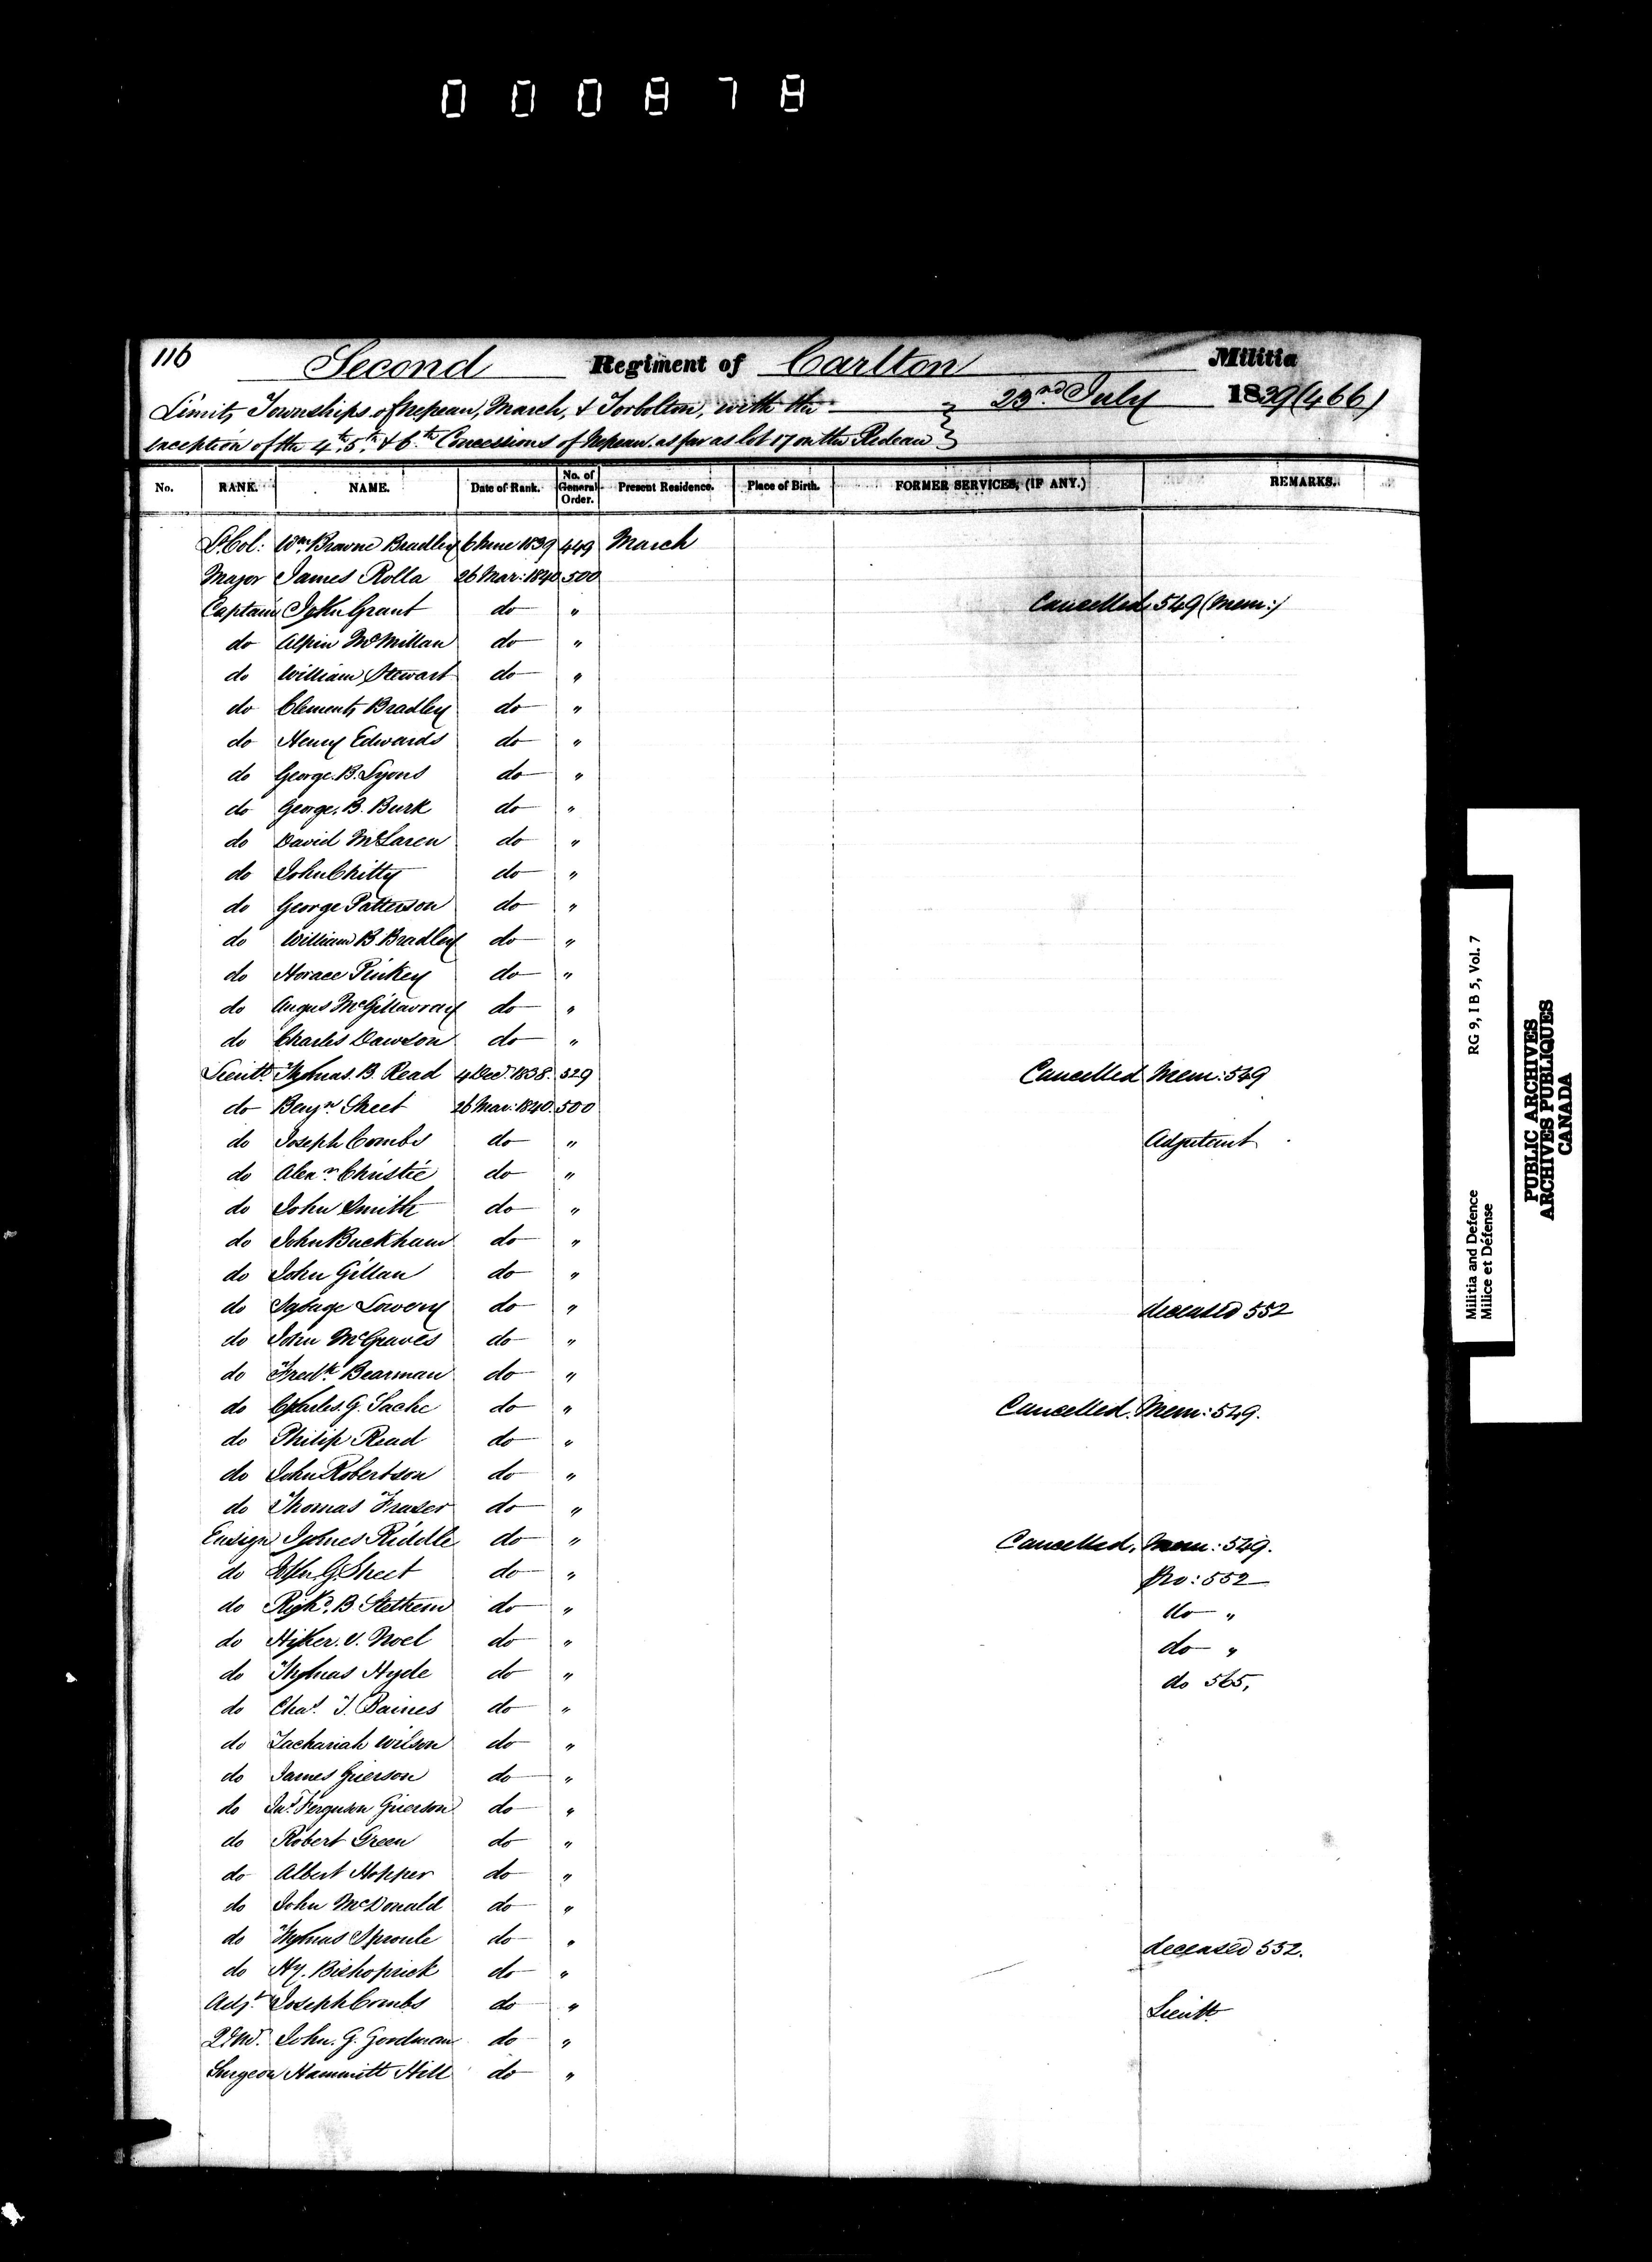 000878
116 Second Regiment of Carlton Militia
Limits, Townships of Nepean, March, & Torbolton, with the 23rd July 1839 (466)
exception of the 4th, 5th, & 6th Concessions of Nepean as far as lot 17 on the Rideau
No. RANK. NAME. Date of Rank. No. of General Order. Present Residence. Place of Birth. FORMER SERVICES, (IF ANY.) REMARKS.
Lt Col: Wm Browne Bradley 6 June 1839 449 March
Major James Rolla 26 Mar: 1840 500
Captain John Grant do " Cancelled 549 (Mem:)
do Alpin McMillan do "
do William Stewart do "
do Clements Bradley do "
do Henry Edwards do "
do George. B. Lyons do "
do George. B. Burk do "
do David McLaren do "
do John Chitty do "
do George Patterson do "
do William B Bradley do "
do Horace Pinkey do "
do Angus McGillavray do "
do Charles Dawson do "
Lieutt Thomas. B. Read 4 Decr 1838. 529 Cancelled Mem: 549
do Benjn Street 26 Mar: 1840. 500
do Joseph Combs do " Adjutant
do Alexr Christie do "
do John Smith do "
do John Buckham do "
do John Gillan do "
do Lowery do " deceased 552
do John McGraves do "
do Fredk Bearman do "
do Charles. G. Sache do " Cancelled. Mem: 549.
do Philip Read do "
do John Robertson do "
do Thomas Frazer do "
Ensign James Riddle do " Cancelled, Mem: 549.
do John. G. Street do " Pro: 552
do Richd. B Stethem do " do "
do V. Noel do " do "
do Thomas Hyde do " do 565,
do Chas. T. Baines do "
do Zachariah Wilson do "
do James Grierson do "
do Jno Ferguson Grierson do "
do Robert Green do "
do Albert Hopper do "
do John McDonald do "
do Thomas Sproule do " deceased 552.
do Hy. Bishoprick do "
Adjt Joseph Combs do " Lieutt
Q.M. John. G. Goodman do "
Surgeon Hammitt Hill do "
Militia and Defence RG 9, I B 5, Vol. 7
Milice et Défense
PUBLIC ARCHIVES
ARCHIVES PUBLIQUES
CANADA